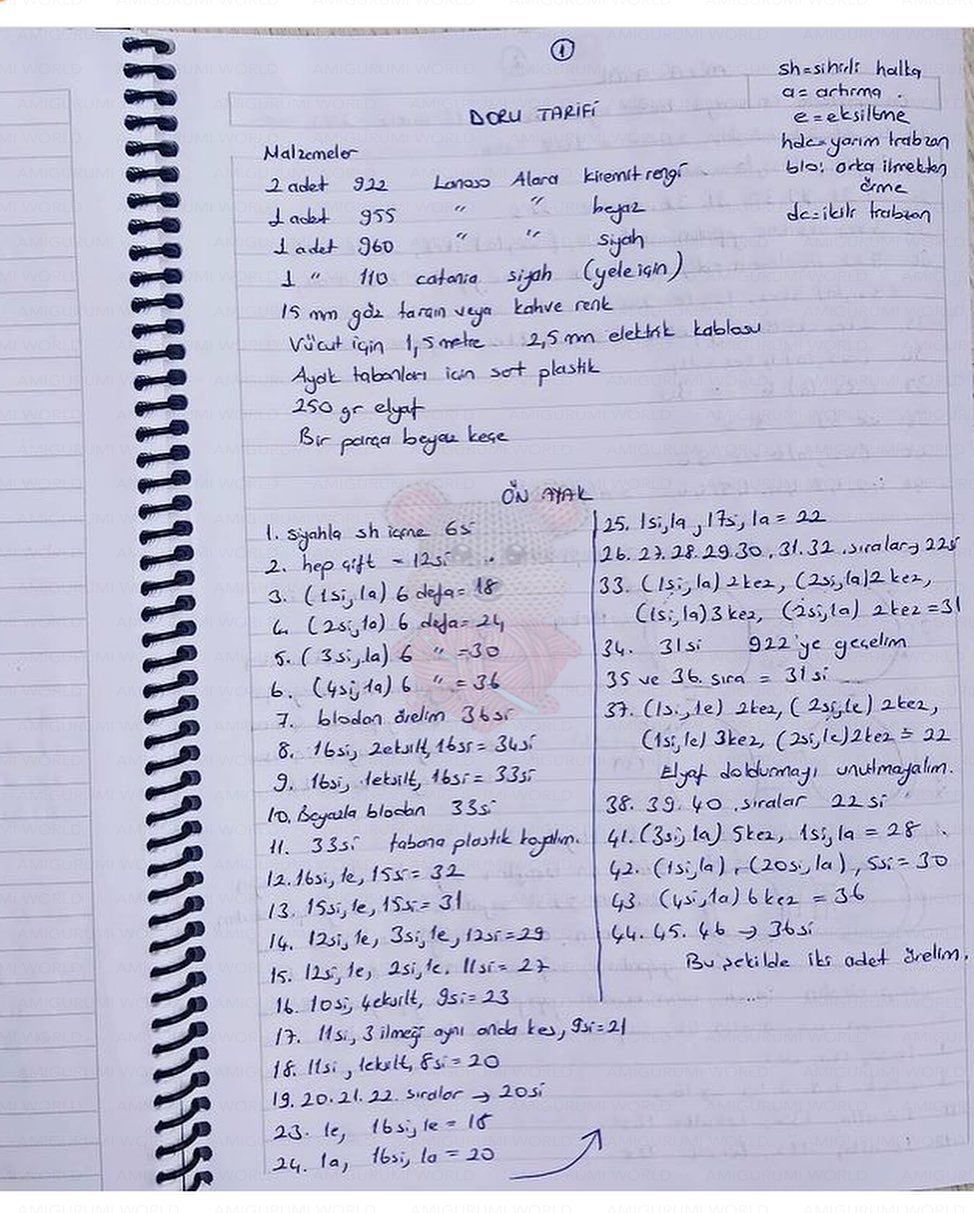 1
sh=sihirli halka
a= artırma
e=eksiltme
hdc=yarım trabzan
blo: orta ilmekten
örme
dc=ikili trabzan
DORU TARİFİ
Malzemeler
2 adet 922 Lanoso Alara kiremit rengi
1 adet 955 " " beyaz
1 adet 960 " " siyah
1 " 110 catania siyah (yele için)
15 mm göz tarçın veya kahve renk
Vücut için 1,5 metre 2,5 mm elektrik kablosu
Ayak tabanları için sert plastik
250 gr elyaf
Bir parça beyaz keçe
ÖN AYAK
1. siyahla sh içine 6si
2. hep çift = 12si
3. (1si, 1a) 6 defa= 18
4. (2si, 1a) 6 defa= 24
5. (3si, 1a) 6 " =30
6. (4si, 1a) 6 " = 36
7. blodan örelim 36si
8. 16si, 2eksilt, 16si= 34si
9. 16si, 1eksilt, 16si= 33si
10. Beyazla blodan 33si
11. 33si tabana plastik koyalım.
12. 16si, 1e, 15si= 32
13. 15si, 1e, 15si= 31
14. 12si, 1e, 3si, 1e, 12si=29
15. 12si, 1e, 2si, 1e, 11si= 27
16. 10si, 4eksilt, 9si= 23
17. 11si, 3 ilmeği aynı anda kes, 9si=21
18. 11si, 1eksilt, 8si= 20
19. 20. 21. 22. sıralar → 20si
23. 1e, 16si, 1e = 18
24. 1a, 16si, 1a = 20
25. 1si, 1a, 17si, 1a = 22
26. 27. 28. 29. 30. 31. 32. sıralar → 22si
33. (1si, 1a) 2kez, (2si, 1a) 2 kez,
(1si, 1a) 3 kez, (2si, 1a) 2 kez =31
34. 31si 922'ye geçelim
35 ve 36. sıra = 31si
37. (1si, 1e) 2kez, (2si, 1e) 2kez,
(1si, 1e) 3kez, (2si, 1e) 2kez = 22
Elyaf doldurmayı unutmayalım.
38. 39. 40. sıralar 22si
41. (3si, 1a) 5kez, 1si, 1a = 28
42. (1si, 1a), (20si, 1a), 5si = 30
43. (4si, 1a) 6kez = 36
44. 45. 46 → 36si
Bu şekilde iki adet örelim.